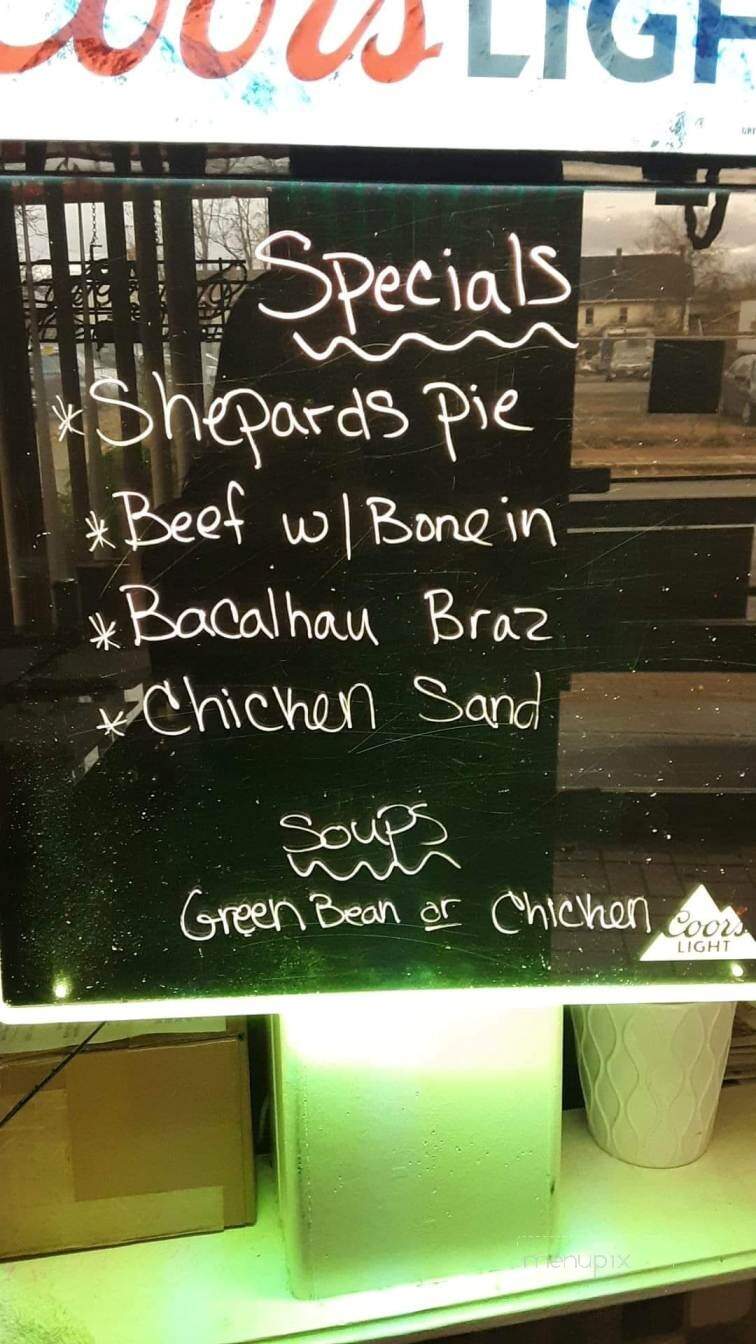 Coors LIGH
Specials
*Shepards Pie
*Beef w/ Bone in
*Bacalhau Braz
*Chicken Sand
Soups
Green Bean or Chicken
Coors
LIGHT
menupix